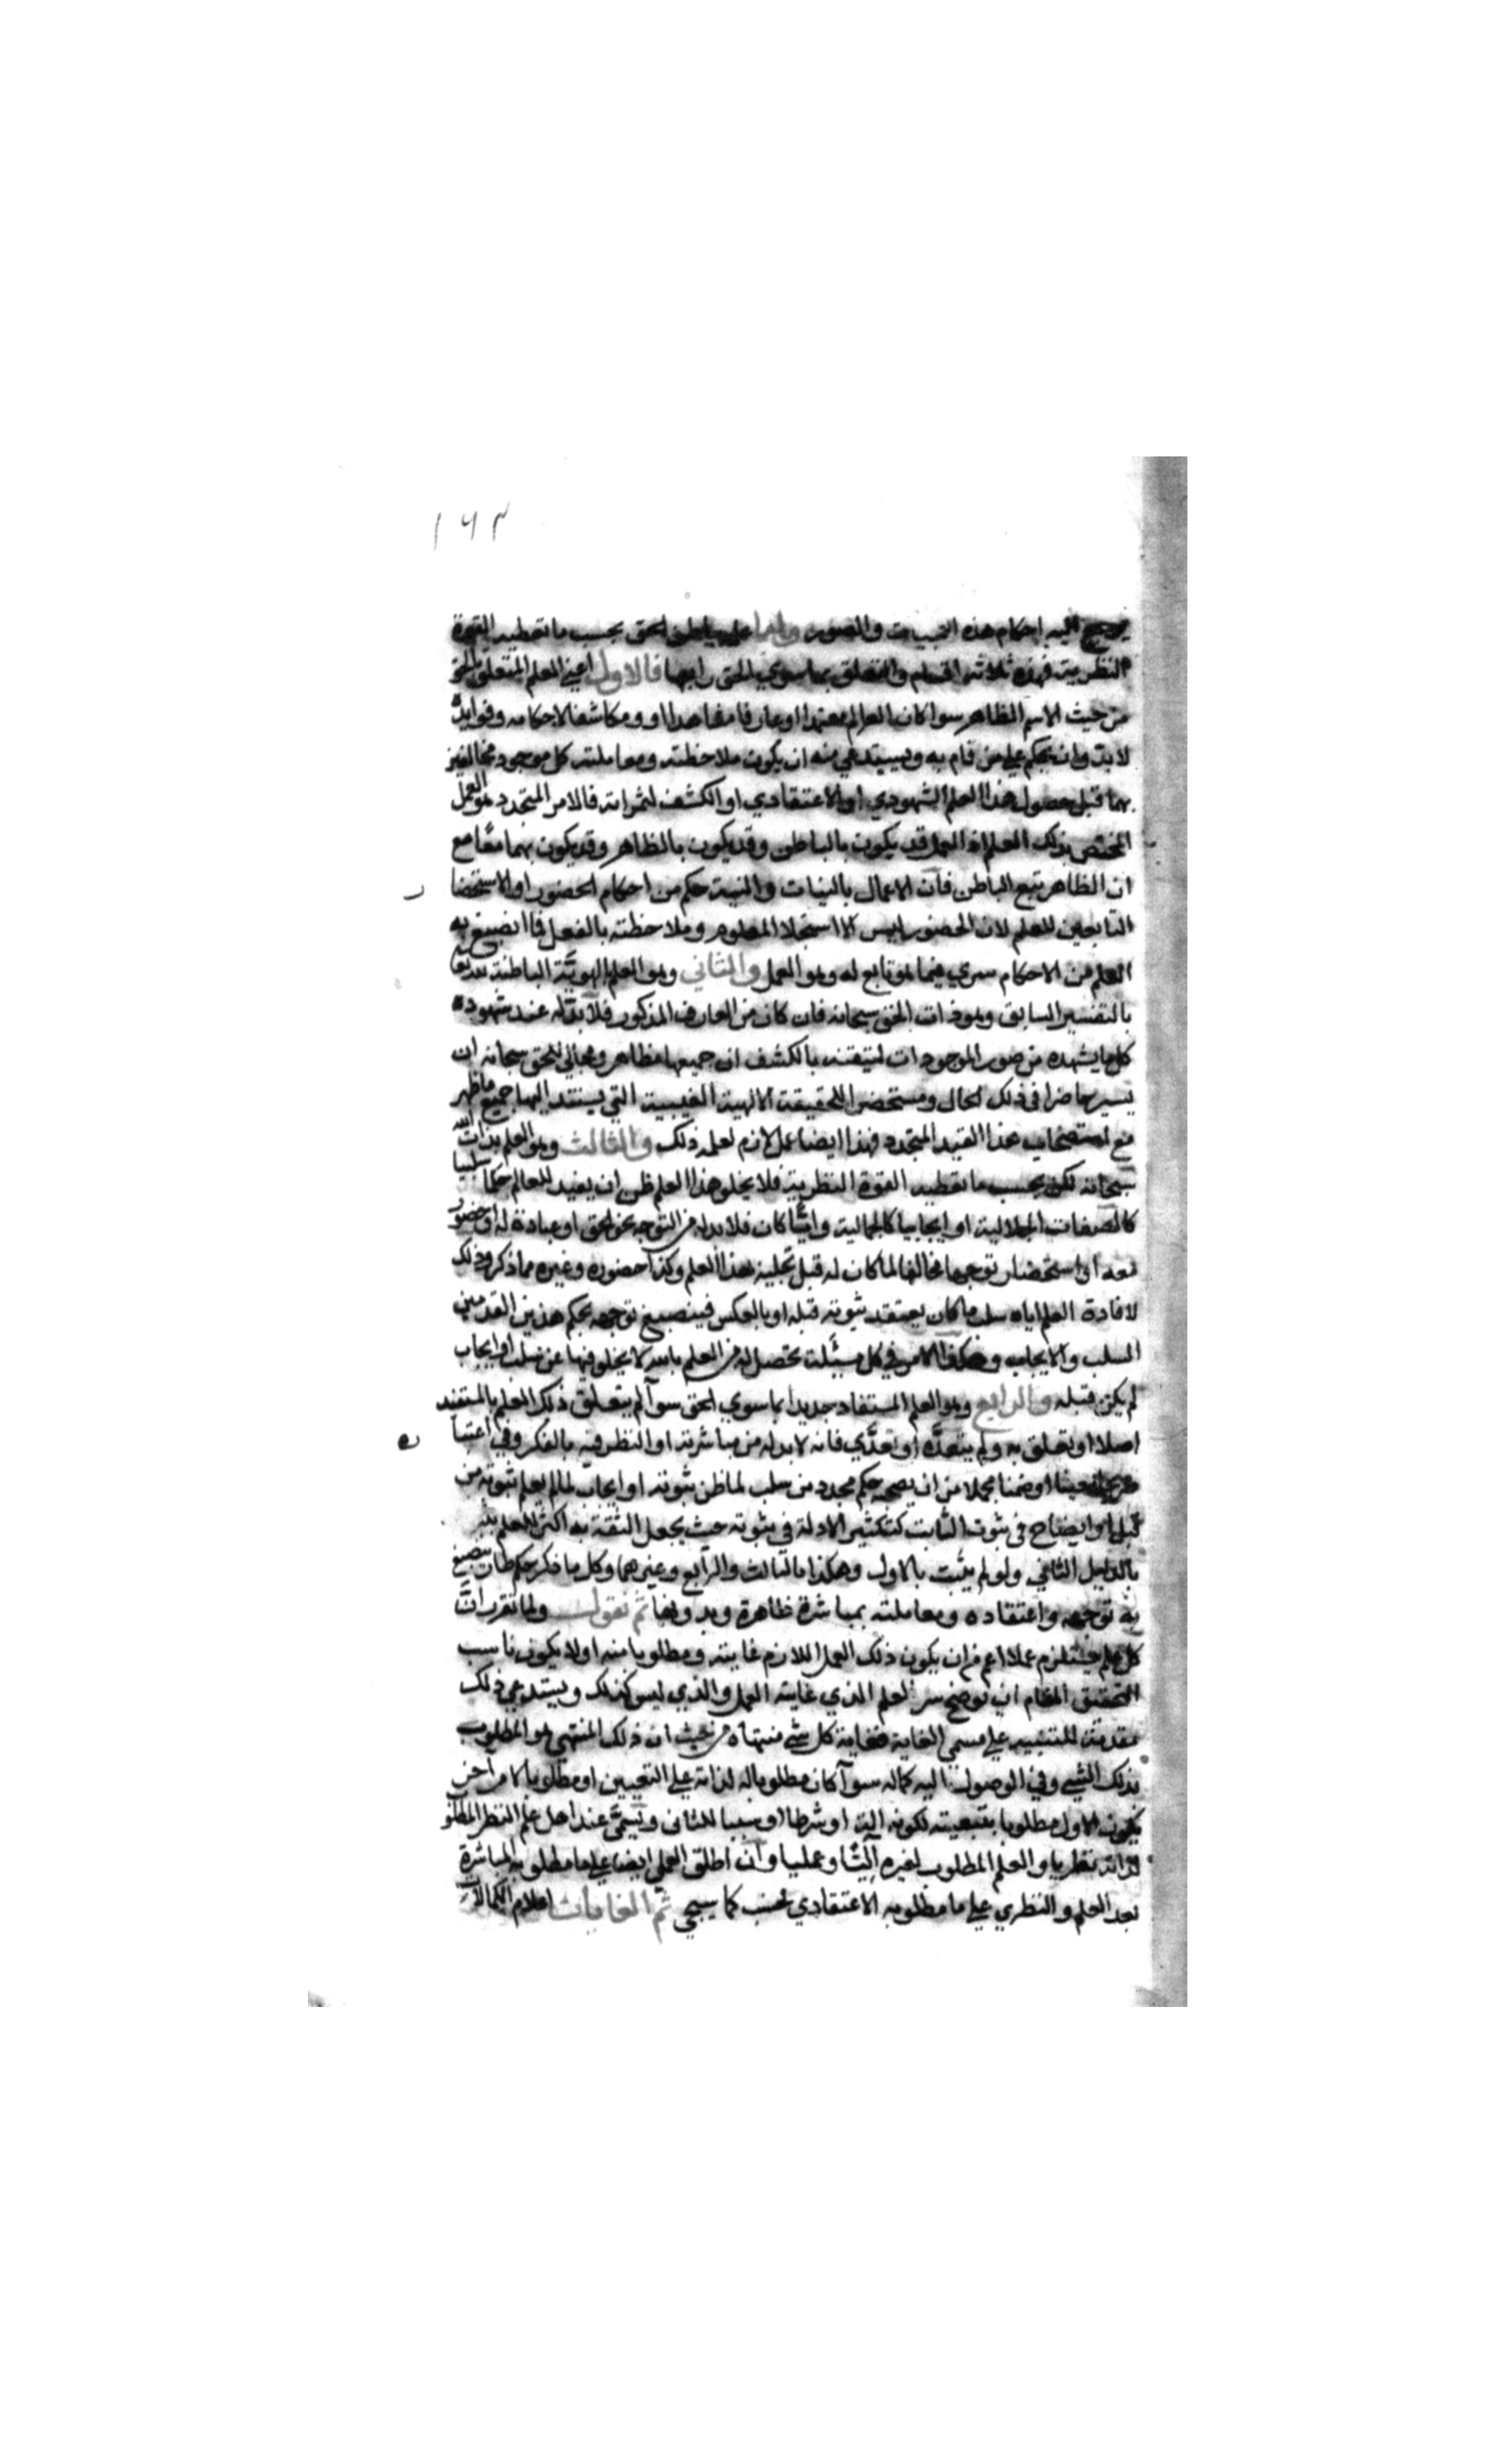 ١٦٣
اليه احكام هذه النسب والصور واما علم باطن الحق بحسب ما تعطيه القوة
النظرية فهذه ثلاثة اقسام والمتعلق بما سوي الحق رابعها فالاول اعني العلم المتعلق بالحق
من حيث الاسم الظاهر سوا كان العالم معتقدا او عارفا مشاهدا او ومكاشفا لاحكامه وفوايده
لابد وان يحكم علي من قام به ويستدعي منه ان يكون ملاحظته ومعاملته كل موجود مخالفتين
بما قبل حصول هذا العلم الشهودي او الاعتقادي او الكشف لثمراته فالامر المتجدد هو العمل
المختص بذلك العلم اذ العمل قد يكون بالباطن وقد يكون بالظاهر وقد يكون بهما معًا مع
ان الظاهر يتبع الباطن فان الاعمال بالنيات والنية حكم من احكام الحضور او الاستحضا
ر
التابعين للعلم لان الحضور ليس الا استجلا المعلوم وملاحظته بالفعل فما انصبغ به
العلم من الاحكام سري فيما هو تابع له وهو العمل والثاني وهو العلم الهويَّة الباطنة
بالتفسير السابق وهو ذات الحق سبحانه فان كان من العارف المذكور فلابدَّ له عند شهوده
كل ما يشهده من صور الموجودات لتيقنه بالكشف ان جميعها مظاهر ومجالي للحق سبحانه ان
يسير حاضرا في ذلك الحال ومستحضرا للحقيقة الالهية الغيبية التي يستند اليها جميع ما ظهر
مع استصحاب هذا القيد المتجدد فهذا ايضا عمل لازم لعلمه ذلك والثالث وهو العلم بذات الله
سبحانه لكن بحسب ما تعطيه القوة النظرية فلا يخلو هذا العلم من ان يفيد للعالم حكما سلبيا
كالصفات الجلالية او ايجابيا كالجمالية وايًّا كان فلابد له من التوجه نحو الحق او عبادة له او حضور
معه او استحضار توجها مخالفا لما كان له قبل تجلية هذا العلم وكذا حضوره وغيره مما ذكر وذلك
لافادة العلم اياه سلب ما كان يعتقد ثبوته قبله او بالعكس فينصبغ توجهه بحكم هذين القدمين
السلب والايجاب وهكذا الامر في كل مسئلة تحصل له من العلم بالله لا يخلو فيها عن سلب او ايجاب
لم يكن قبله والرابع وهو العلم المستفاد جديدا بما سوي الحق سوآ لم يتعلق ذلك العلم بالمستفيد
اصلا او تعلق به ولم يتعدَّه او تعدَّي فانه لابد له من مباشرته او النظر فيه بالفكر وفي اعتبا
ره
معينا او ضمنا مجملا من ان يصحبه حكم مجدد من سلب لما ظن ثبوته او ايجاب لما لم يعلم ثبوته من
قبل او ايضاح في ثبوت الثابت كتكثير الادلة في ثبوته حيث يجعل الثقة به اكثر للعلم
بالدليل الثاني ولو لم يثبت بالاول وهكذا بالثالث والرابع وغيرهما وكل ما ذكر حكم طار ينصبغ
به توجهه واعتقاده ومعاملته بمباشرة ظاهرة وبدونها ثم نقول ولما تقرر انَّ
كل علم يستلزم عملا اعم من ان يكون ذلك العمل اللازم غايته ومطلوبا منه اولا يكون ناسب
التحقيق المقام ان نوضح سر العلم الذي غايته العمل والذي ليس كذلك ويستدعي ذلك
مقدمة للتنبيه علي مسمي الغاية فغاية كل شي منتهاه من حيث ان ذلك المنتهي هو المطلوب
بذلك الشي وفي الوصول اليه كماله سوآ كان مطلوبا له لذاته علي التعيين او مطلوبا لامر آخر
يكون الاول مطلوبا بتبعيته لكونه الة او شرطا او سببا للثاني ويسمَّي عند اهل علم النظر المطلو
لذاته نظريا والعلم المطلوب لغيره آليًّا وعمليا وان اطلق العملي ايضا علي ما مطلوبه المباشرة
بعد العلم والنظري علي ما مطلوبه الاعتقادي فحسب كما سيجي ثم الغايات اعلام الكمالات